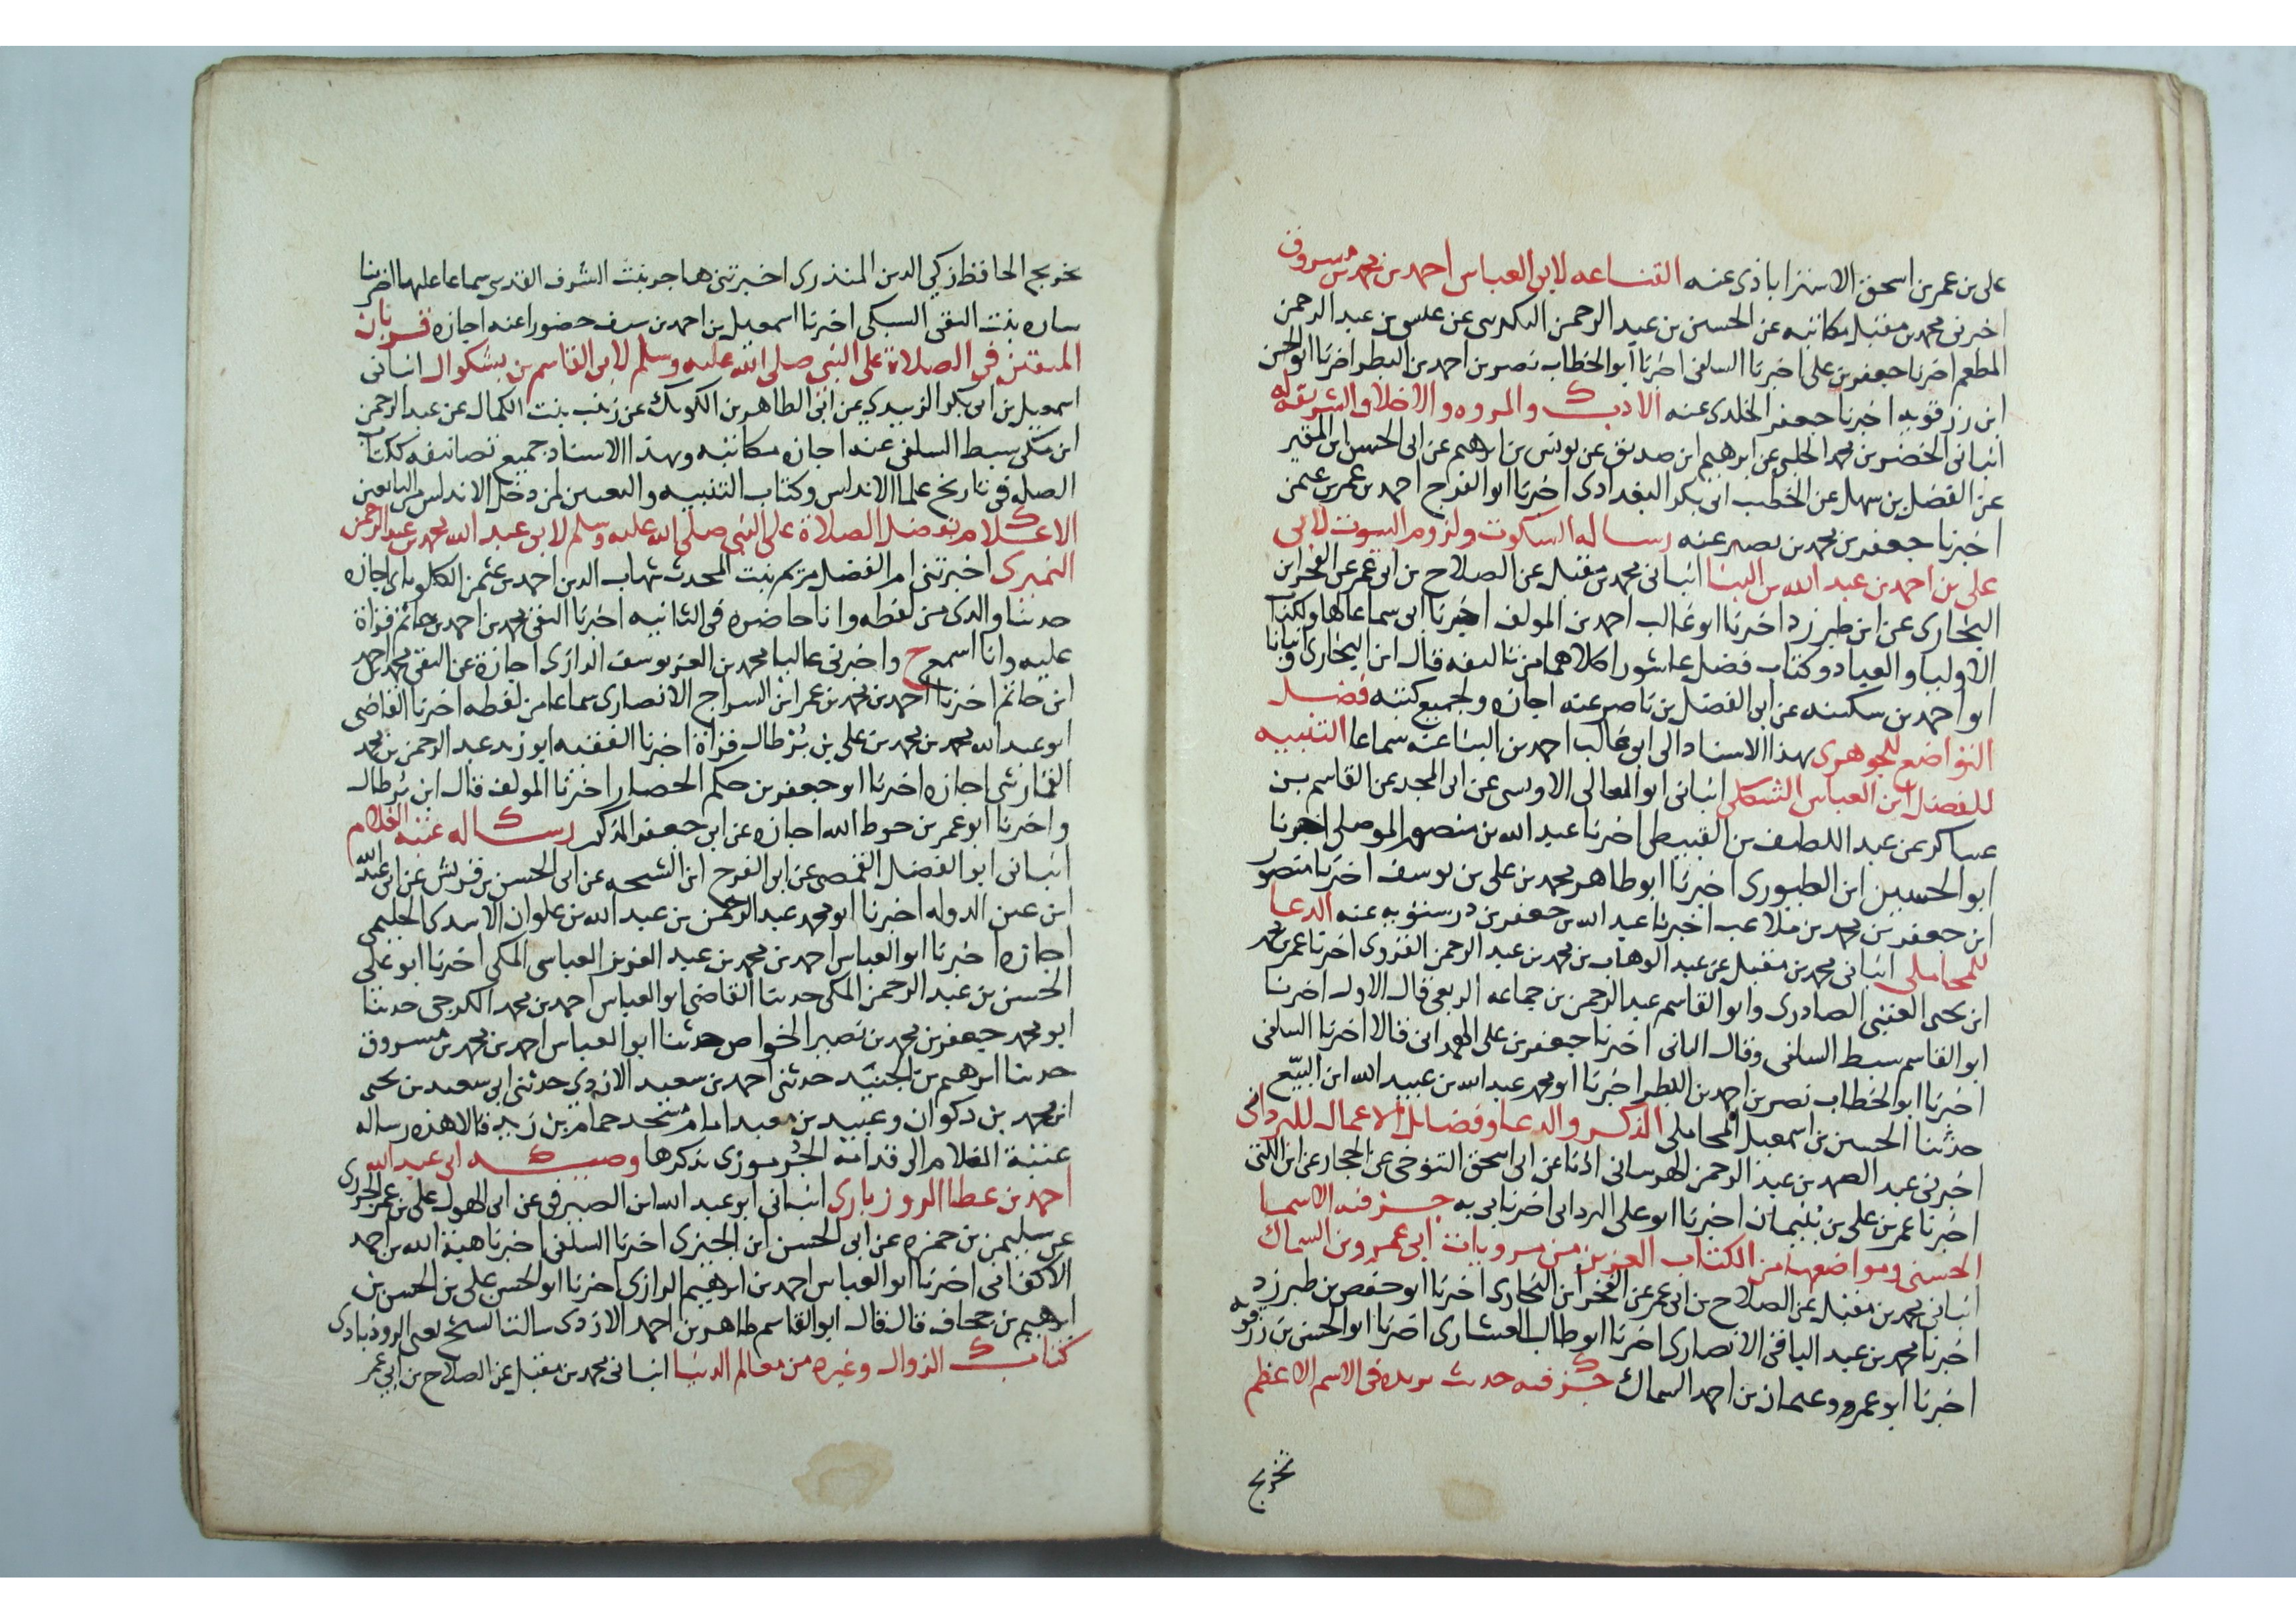 على بن عمر بن اسحق الاستراباذى عنه القناعه لابى العباس احمد بن محمد بن مسروق
اخبرنى محمد بن مقبل مكاتبه عن الحسين بن عبد الرحمن التكريتى عن عيسى بن عبد الرحمن
المطعم اخبرنا جعفر بن على اخبرنا السلفى اخبرنا ابو الخطاب نصر بن احمد بن البطر اخبرنا ابو الحسن
ابن رزقويه اخبرنا جعفر الخلدى عنه الادب والمروه والاخلاق الشريفه له
انبانى الخضر بن محمد الحلبى عن ابرهيم ابن صديق عن يونس بن ابرهيم عن ابى الحسن ابن المقير
عن الفضل بن سهل عن الخطيب ابى بكر البغدادى اخبرنا ابو الفرج احمد بن عمر بن عثمن
اخبرنا جعفر بن محمد بن نصير عنه رساله السكوت ولزوم البيوت لابى
على بن احمد بن عبد الله بن البنا انبانى محمد بن مقبل عن الصلاح بن ابى عمر عن الفخر ابن
البخارى عن ابن طبرزد اخبرنا ابو غالب احمد بن المولف اخبرنا ابى سماعا لها ولكتاب
الاوليا والعباد وكتاب فضل عاشورا كلاهما من تاليفه قال ابن البخارى وانبانا
ابو احمد بن سكينه عن ابى الفضل بن ناصر عنه اجازه ولجميع كتبه فضل
التواضع للجوهرى بهذا الاسناد الى ابى غالب احمد بن البنا عنه سماعا التنبيه
للفضل ابن العباس الشكلى انبانى ابو المعالى الاويسى عن ابى المجد عن القاسم بن
عساكر عن عبد اللطيف بن القبيطى اخبرنا عبد الله بن منصور الموصلى اخبرنا
ابو الحسين ابن الطيورى اخبرنا ابو طاهر محمد بن على بن يوسف اخبرنا منصور
ابن جعفر بن محمد بن ملاعب اخبرنا عبد الله بن جعفر بن درستويه عنه الدعا
للمحاملى انبانى محمد بن مقبل عن عبد الوهاب بن محمد بن عبد الرحمن القروى اخبرنا عمر بن محمد
ابن يحيى العتبى الصادرى وابو القاسم عبد الرحمن بن جماعه الربعى قال الاول اخبرنا
ابو القاسم سبط السلفى وقال الثانى اخبرنا جعفر بن على الهمدانى قالا اخبرنا السلفى
اخبرنا ابو الخطاب نصر بن احمد بن البطر اخبرنا ابو محمد عبد الله بن عبيد الله ابن البيّع
حدثنا الحسين بن اسمعيل المحاملى الذكر والدعا وفضايل الاعمال للبردانى
اخبرنى عبد الصمد بن عبد الرحمن الهرسانى اذنا عن ابى اسحق التنوخى عن الحجار عن ابن اللتى
اخبرنا عمر بن على بن بنيمان اخبرنا ابو على البردانى اخبرنا ابى به جز فيه الاسما
الحسنى ومواضعها من الكتاب العزيز من مرويات ابى عمرو بن السماك
انبانى محمد بن مقبل عن الصلاح بن ابى عمر عن الفخر ابن البخارى اخبرنا ابو حفص بن طبرزد
اخبرنا محمد بن عبد الباقى الانصارى اخبرنا ابو طالب العشارى اخبرنا ابو الحسن بن رزقويه
اخبرنا ابو عمرو عثمان بن احمد السماك جز فيه حديث بريده فى الاسم الاعظم
تخريج
تخريج الحافظ زكى الدين المنذرى اخبرتنى هاجر بنت الشرف القدسى سماعا عليها اخبرتنا
ساره بنت التقى السبكى اخبرنا اسمعيل بن احمد بن سيف حضورا عنه اجازه قربان
المتقين فى الصلاة على النبى صلى الله عليه وسلم لابى القاسم بن بشكوال انبانى
اسمعيل بن ابى بكر الزبيدى عن ابى الطاهر بن الكويك عن زينب بنت الكمال عن عبد الرحمن
ابن مكى سبط السلفى عنه اجازه مكاتبه وبهذا الاسناد جميع تصانيفه ككتاب
الصله فى تاريخ علما الاندلس وكتاب التنبيه والتعيين لمن دخل الاندلس من التابعين
الاعلام بفضل الصلاة على النبى صلى الله عليه وسلم لابى عبد الله محمد بن عبد الرحمن
النميرى اخبرتنى ام الفضل مريم بنت المحدث شهاب الدين احمد بن عثمن الكلوتاتى اجازه
حدثنا والدى من لفظه وانا حاضره فى الثانيه اخبرنا التقى محمد بن احمد بن حاتم قراة
عليه وانا اسمع ح واخبرنى عاليا محمد بن العز يوسف الرازى اجازة عن التقى محمد بن احمد
ابن حاتم اخبرنا احمد بن محمد بن عمر ابن السراج الانصارى سماعا من لفظه اخبرنا القاضى
ابو عبد الله محمد بن محمد بن على بن بُرْطال قراة اخبرنا الفقيه ابو زيد عبد الرحمن بن محمد
القمارشى اجازه اخبرنا ابو جعفر بن حكم الحصار اخبرنا المولف قال ابن بُرطال
واخبرنا ابو عمر بن حوط الله اجازه عن ابى جعفر المذكور رساله عتبة الغلام
انبانى ابو الفضل القمصى عن ابى الفرج ابن الشحه عن ابى الحسن بن قريش عن ابى عبد الله
ابن عين الدوله اخبرنا ابو محمد عبد الرحمن بن عبد الله بن علوان الاسدى الحلبى
اجازه اخبرنا ابو العباس احمد بن محمد بن عبد العزيز العباسى المكى اخبرنا ابو على
الحسن بن عبد الرحمن المكى حدثنا القاضى ابو العباس احمد بن محمد الكرجى حدثنا
ابو محمد جعفر بن محمد بن نصير الخواص حدثنا ابو العباس احمد بن محمد بن مسروق
حدثنا ابرهيم بن الجنيد حدثنى احمد بن سعيد الازدى حدثنى ابى سعيد بن يحيى
ابن محمد بن ذكوان وعبيد بن معبد امام مسجد حماد بن زيد قالا هذه رساله
عتبة الغلام الى قدامة الجُرموزى بذكرها وصيه ابى عبد الله
احمد بن عطا الروذبارى انبانى ابو عبد الله ابن الصيرفى عن ابى الهول على بن عمر الجزرى
عن سليمن بن حمزه عن ابى الحسن ابن الجميزى اخبرنا السلفى اخبرنا هبة الله بن احمد
الاكفانى اخبرنا ابو العباس احمد بن ابرهيم الرازى اخبرنا ابو الحسن على بن الحسن بن
ابرهيم بن جحاف قال قال ابو القاسم طاهر بن احمد الازدى سالنا الشيخ يعنى الروذبادى
كتاب الزوال وغيره من معالم الدنيا انبانى محمد بن مقبل عن الصلاح بن ابى عمر